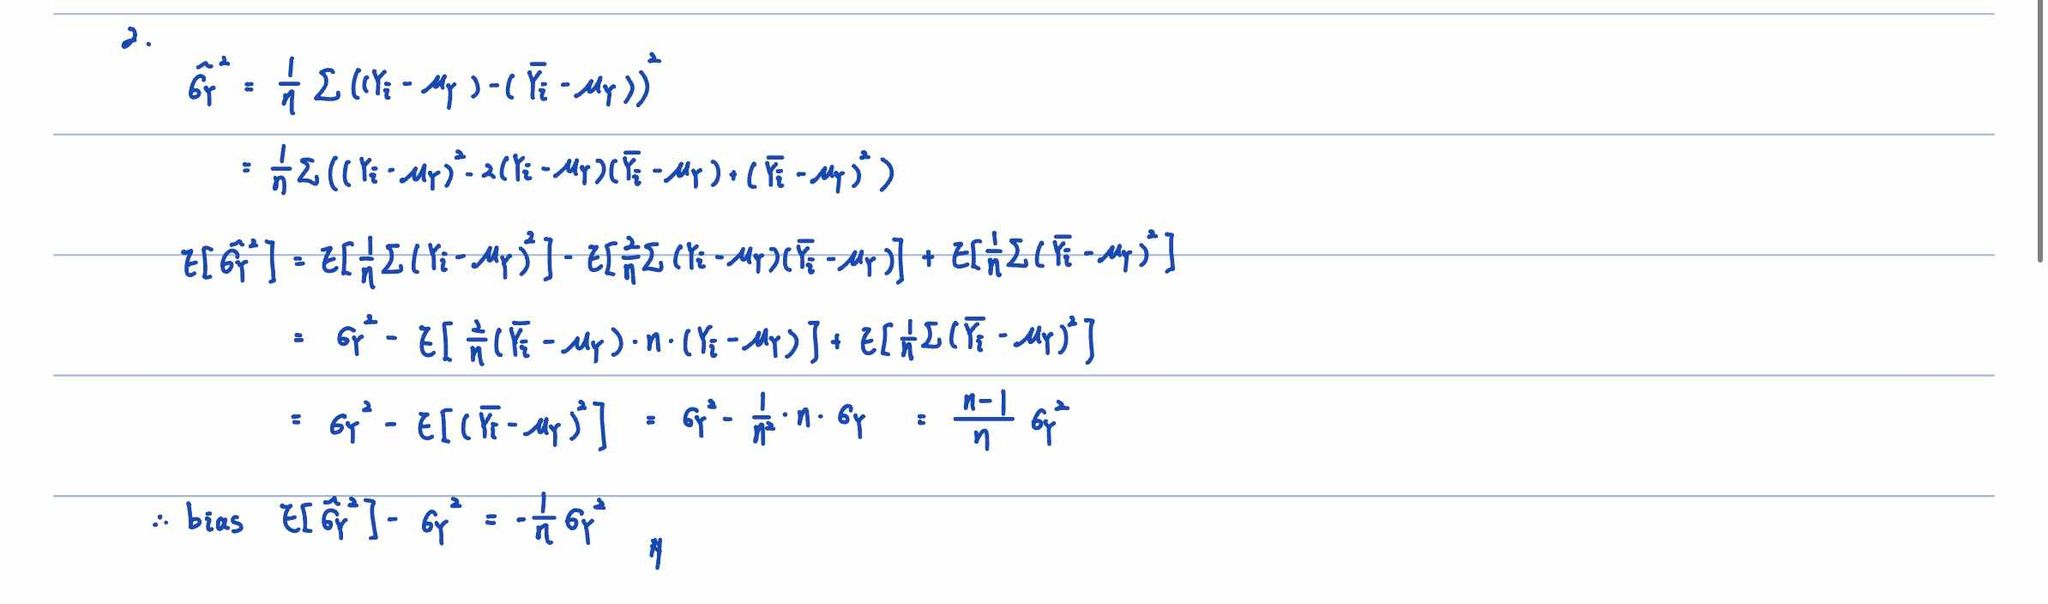 2.
σ̂_Y² = 1/n Σ((Y_i - μ_Y) - (Ȳ_i - μ_Y))²
= 1/n Σ((Y_i - μ_Y)² - 2(Y_i - μ_Y)(Ȳ_i - μ_Y) + (Ȳ_i - μ_Y)²)
E[σ̂_Y²] = E[1/n Σ(Y_i - μ_Y)²] - E[2/n Σ(Y_i - μ_Y)(Ȳ_i - μ_Y)] + E[1/n Σ(Ȳ_i - μ_Y)²]
= σ_Y² - E[2/n (Ȳ_i - μ_Y)·n·(Y_i - μ_Y)] + E[1/n Σ(Ȳ_i - μ_Y)²]
= σ_Y² - E[(Ȳ_i - μ_Y)²] = σ_Y² - 1/n²·n·σ_Y = (n-1)/n σ_Y²
∴ bias E[σ̂_Y²] - σ_Y² = -1/n σ_Y²